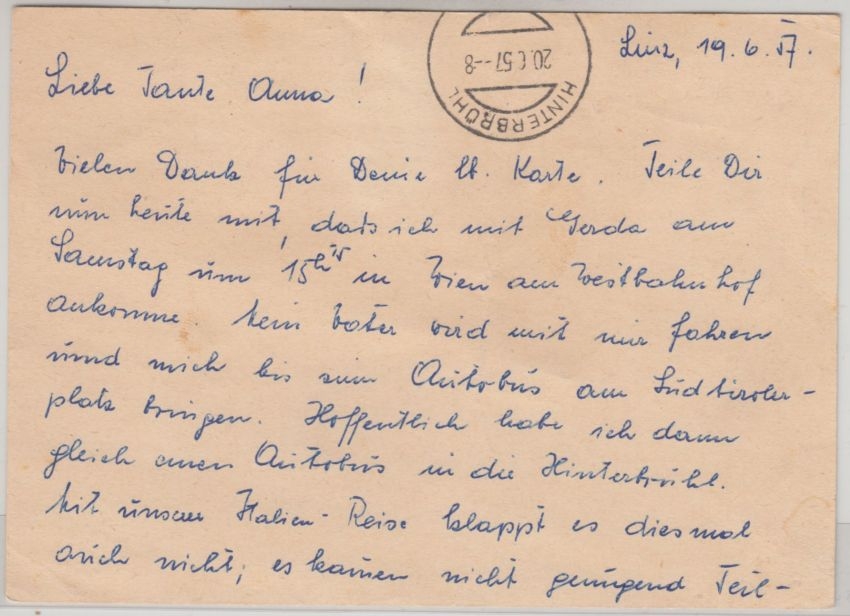 Linz, 19.6.57.
20.6.57--8
HINTERBRÜHL
Liebe Tante Anna!
Vielen Dank für Deine lb. Karte. Teile Dir
nun heute mit, daß ich mit Gerda am
Samstag um 15h15 in Wien am Westbahnhof
ankomme. Mein Vater wird mit mir fahren
und mich bis zum Autobus am Südtiroler-
platz bringen. Hoffentlich habe ich dann
gleich einen Autobus in die Hinterbrühl.
Mit unserer Italien-Reise klappt es diesmal
auch nicht; es kamen nicht genügend Teil-